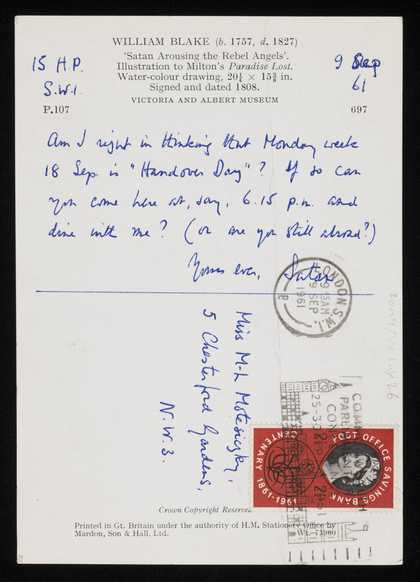 WILLIAM BLAKE (b. 1757, d. 1827)
'Satan Arousing the Rebel Angels'.
Illustration to Milton's Paradise Lost.
Water-colour drawing, 20¼ × 15⅜ in.
Signed and dated 1808.
VICTORIA AND ALBERT MUSEUM
P.107
697
15 H.P.
S.W.1.
9 Sep
61
Am I right in thinking that Monday week
18 Sep is "Handover Day"? If so can
you come here at, say, 6.15 p.m. and
dine with me? (or are you still abroad?)
Yours ever, Satan
LONDON S.W.1.
9 15 AM
9 SEP
1961
Miss M-L Motesiczky,
5 Chesterford Gardens,
N.W.3.
POST OFFICE SAVINGS BANK
CENTENARY 1861-1961
Crown Copyright Reserved
Printed in Gt. Britain under the authority of H.M. Stationery Office by
Mardon, Son & Hall, Ltd.